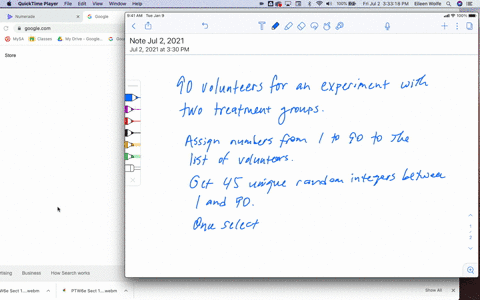 QuickTime Player File Edit View Window Help
Fri Jul 2 3:33:18 PM Eileen Wolfe
Numerade
Google
google.com
MySA
Classes
My Drive - Google...
Store
9:41 AM Tue Jan 9
Note Jul 2, 2021
Jul 2, 2021 at 3:30 PM
90 volunteers for an experiment with
two treatment groups.
Assign numbers from 1 to 90 to the
list of volunteers.
Get 45 unique random integers between
1 and 90.
One select
Business How Search works
PTW8e Sect 1....webm
PTW8e Sect 1....webm
Show All